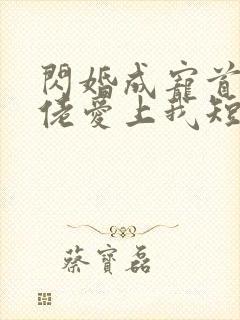 閃婚成寵首
佬愛上我短
蔡寶磊